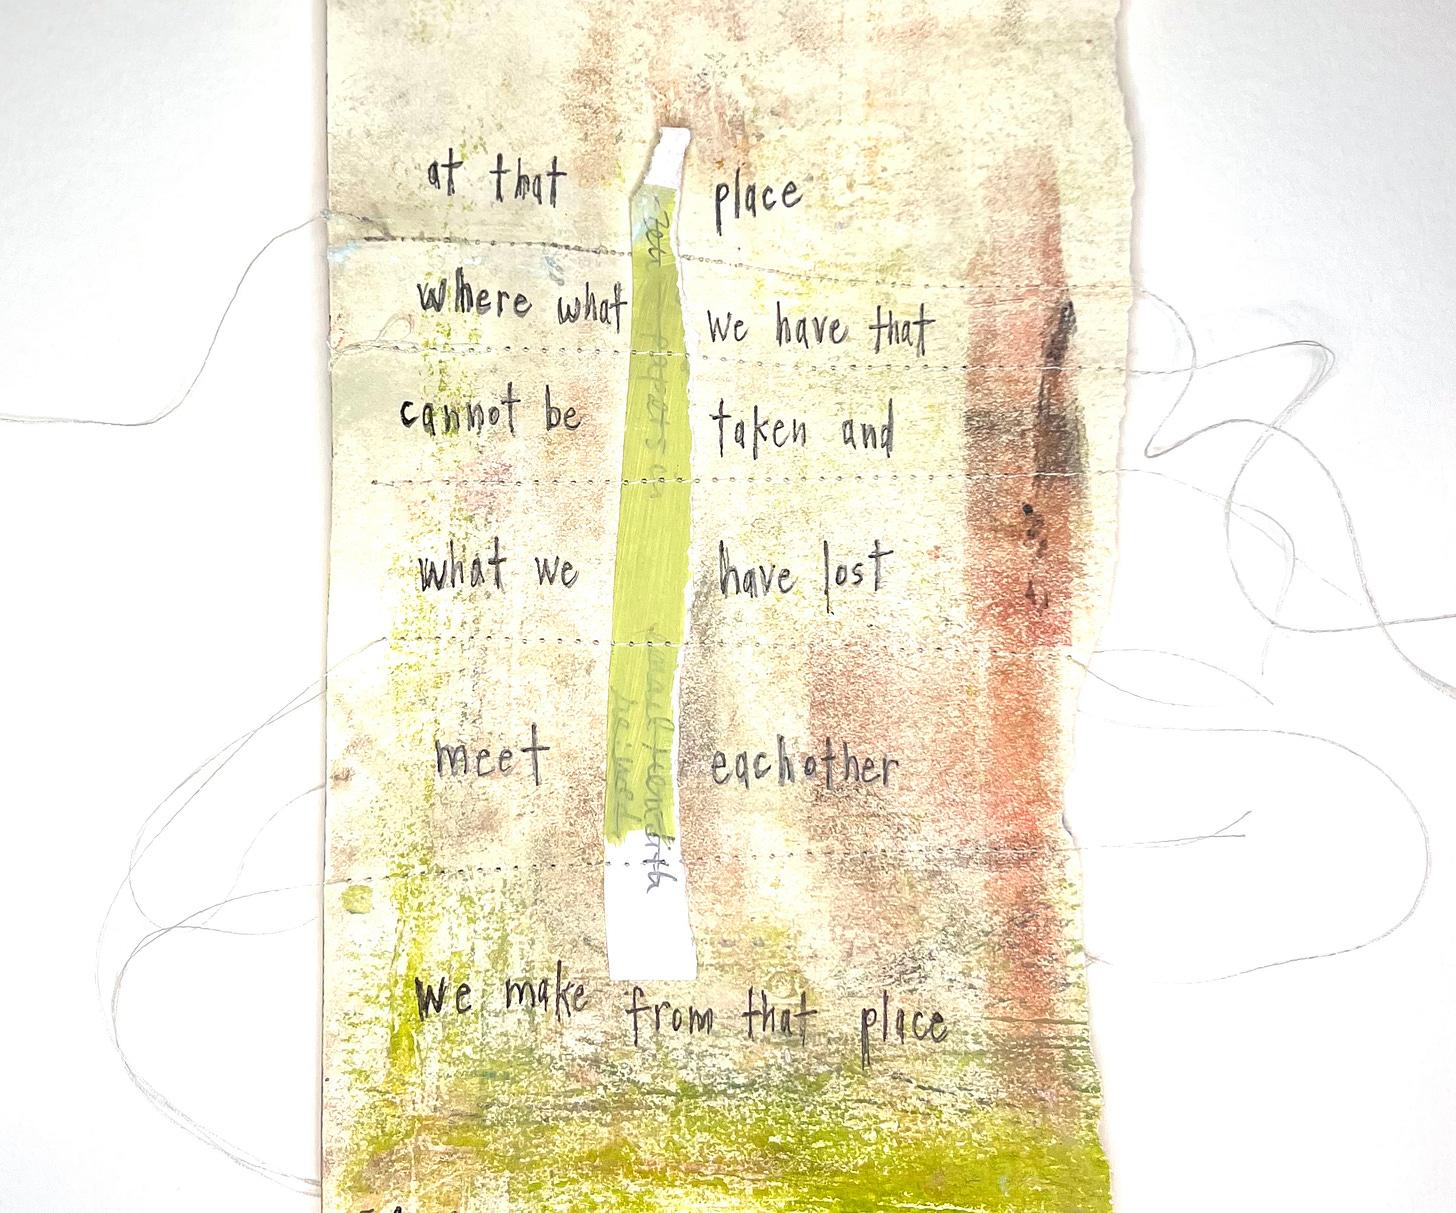 at that place
where what we have that
cannot be taken and
what we have lost
meet eachother
we make from that place